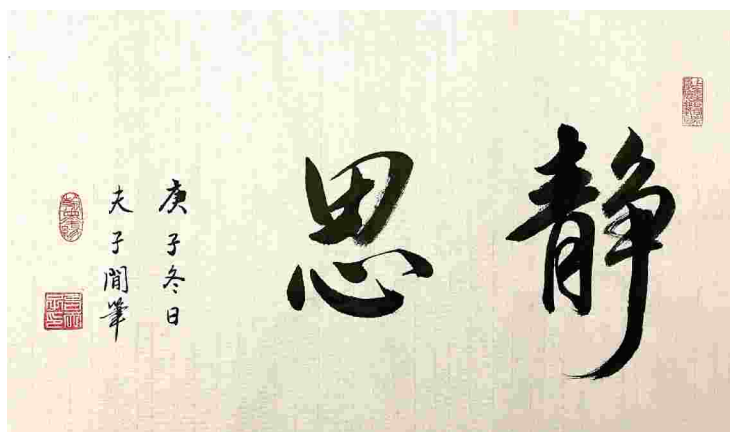 静思
庚子冬日
夫子閒筆